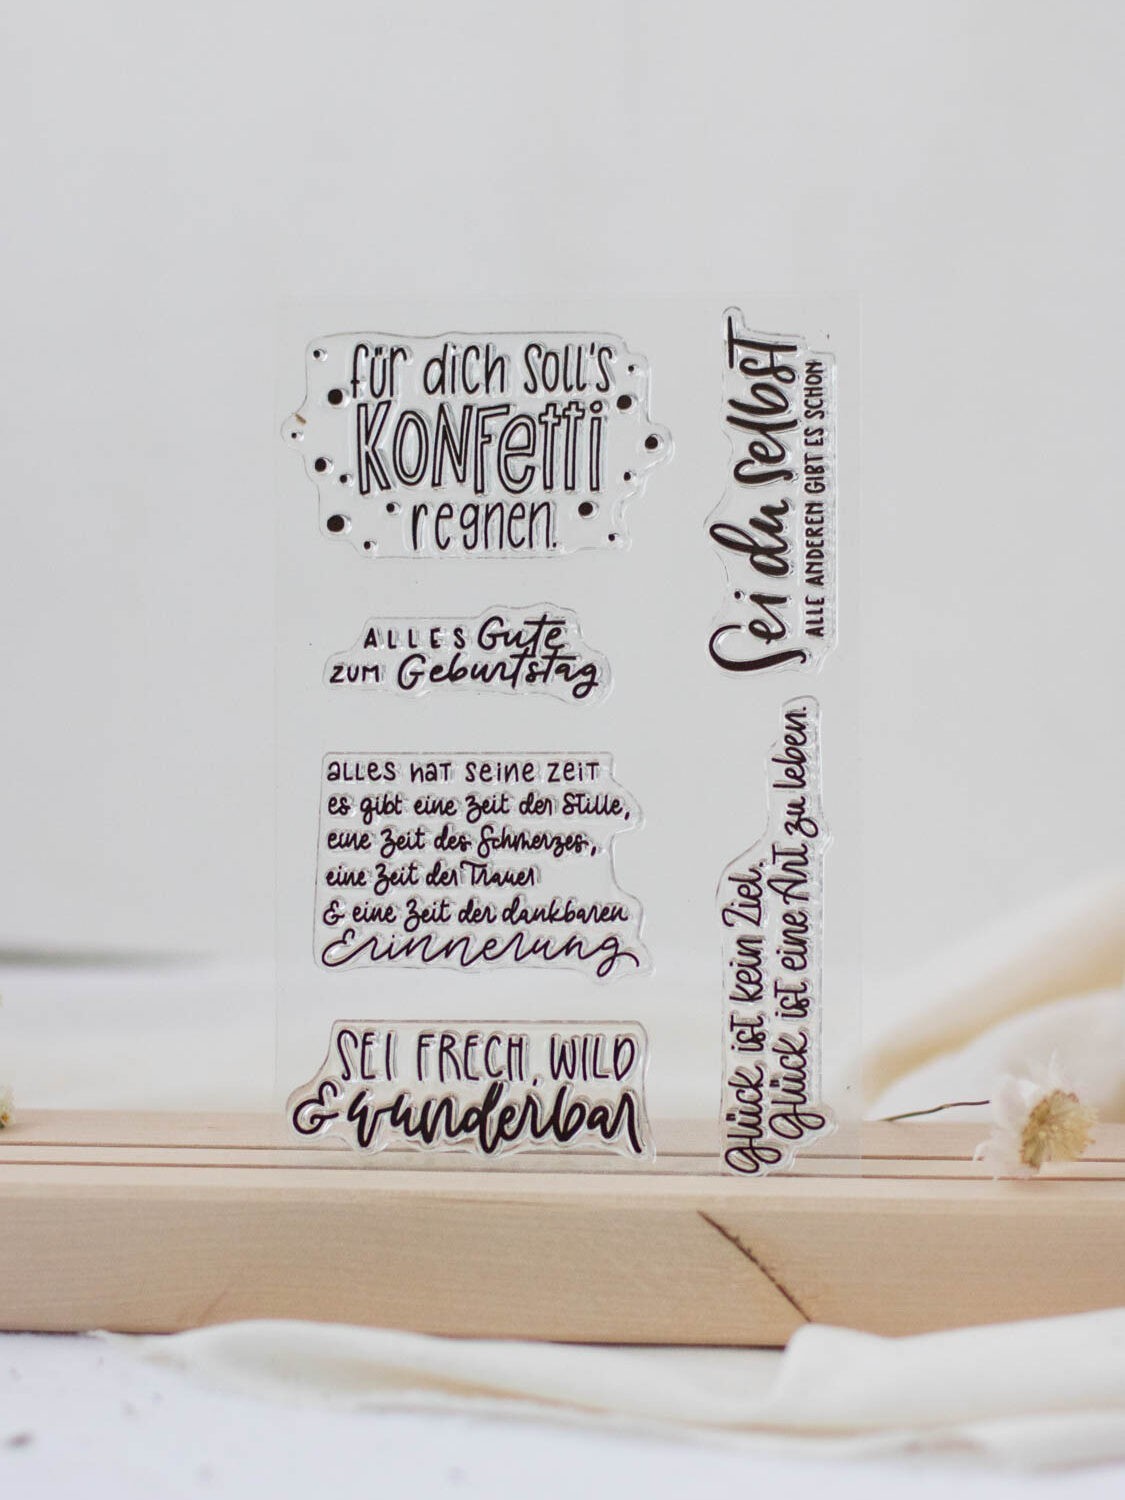 für dich soll's
KONFetti
regnen.
ALLES Gute
ZUM Geburtstag
alles hat seine zeit
es gibt eine Zeit der Stille,
eine Zeit des Schmerzes,
eine Zeit der Trauer
& eine Zeit der dankbaren
Erinnerung
SEI FRECH, WILD
& wunderbar
Sei du selbst
ALLE ANDEREN GIBT ES SCHON
Glück ist kein Ziel.
Glück ist eine Art zu leben.